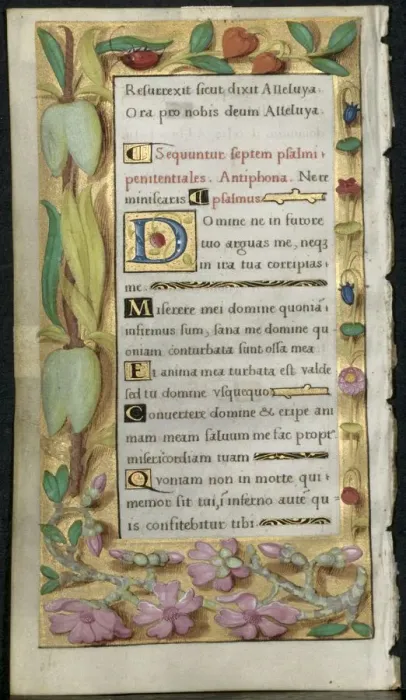 Resurrexit sicut dixit Alleluya.
Ora pro nobis deum Alleluya.
Sequuntur septem psalmi
penitentiales. Antiphona. Nere
miniscaris psalmus
Domine ne in furore
tuo arguas me, neqꝫ
in ira tua corripias
me.
Miserere mei domine quoniā
infirmus sum, sana me domine qu
oniam conturbata sunt ossa mea
Et anima mea turbata est valde
sed tu domine vsquequo
Conuertere domine & eripe ani
mam meam saluum me fac propt
misericordiam tuam
Quoniam non in morte qui
memor sit tui, ī inferno autē qu
is confitebitur tibi